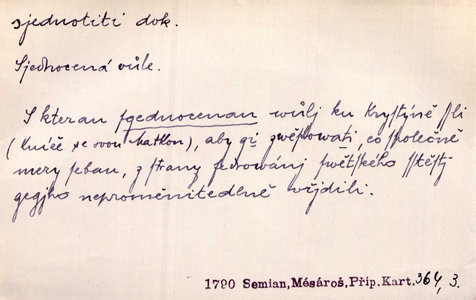 sjednotiti dok.
Sjednocená vůle.
S kterau sgednocenau wůlj ku Krystýně ssli
(kníže se swou matkou), aby gj zwěstowati, co společně
mezy sebau, z strany sedrowánj swětského sstěstj
gegjho neproměnitedlně vřjdili.
1790 Semian, Mésároš, Příp. Kart. 364, 3.